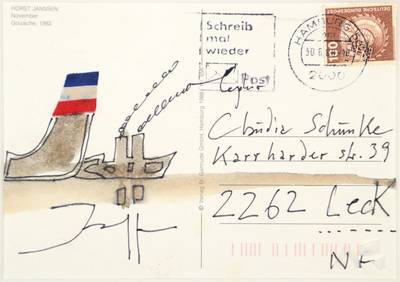 HORST JANSSEN
November
Gouache, 1983
Schreib
mal
wieder
Post
HAMBURG
2000
DEUTSCHE BUNDESPOST
100
© Verlag St. Gertrude GmbH, Hamburg
Claudia Schünke
Karrharder str. 39
2262 Leck
NF